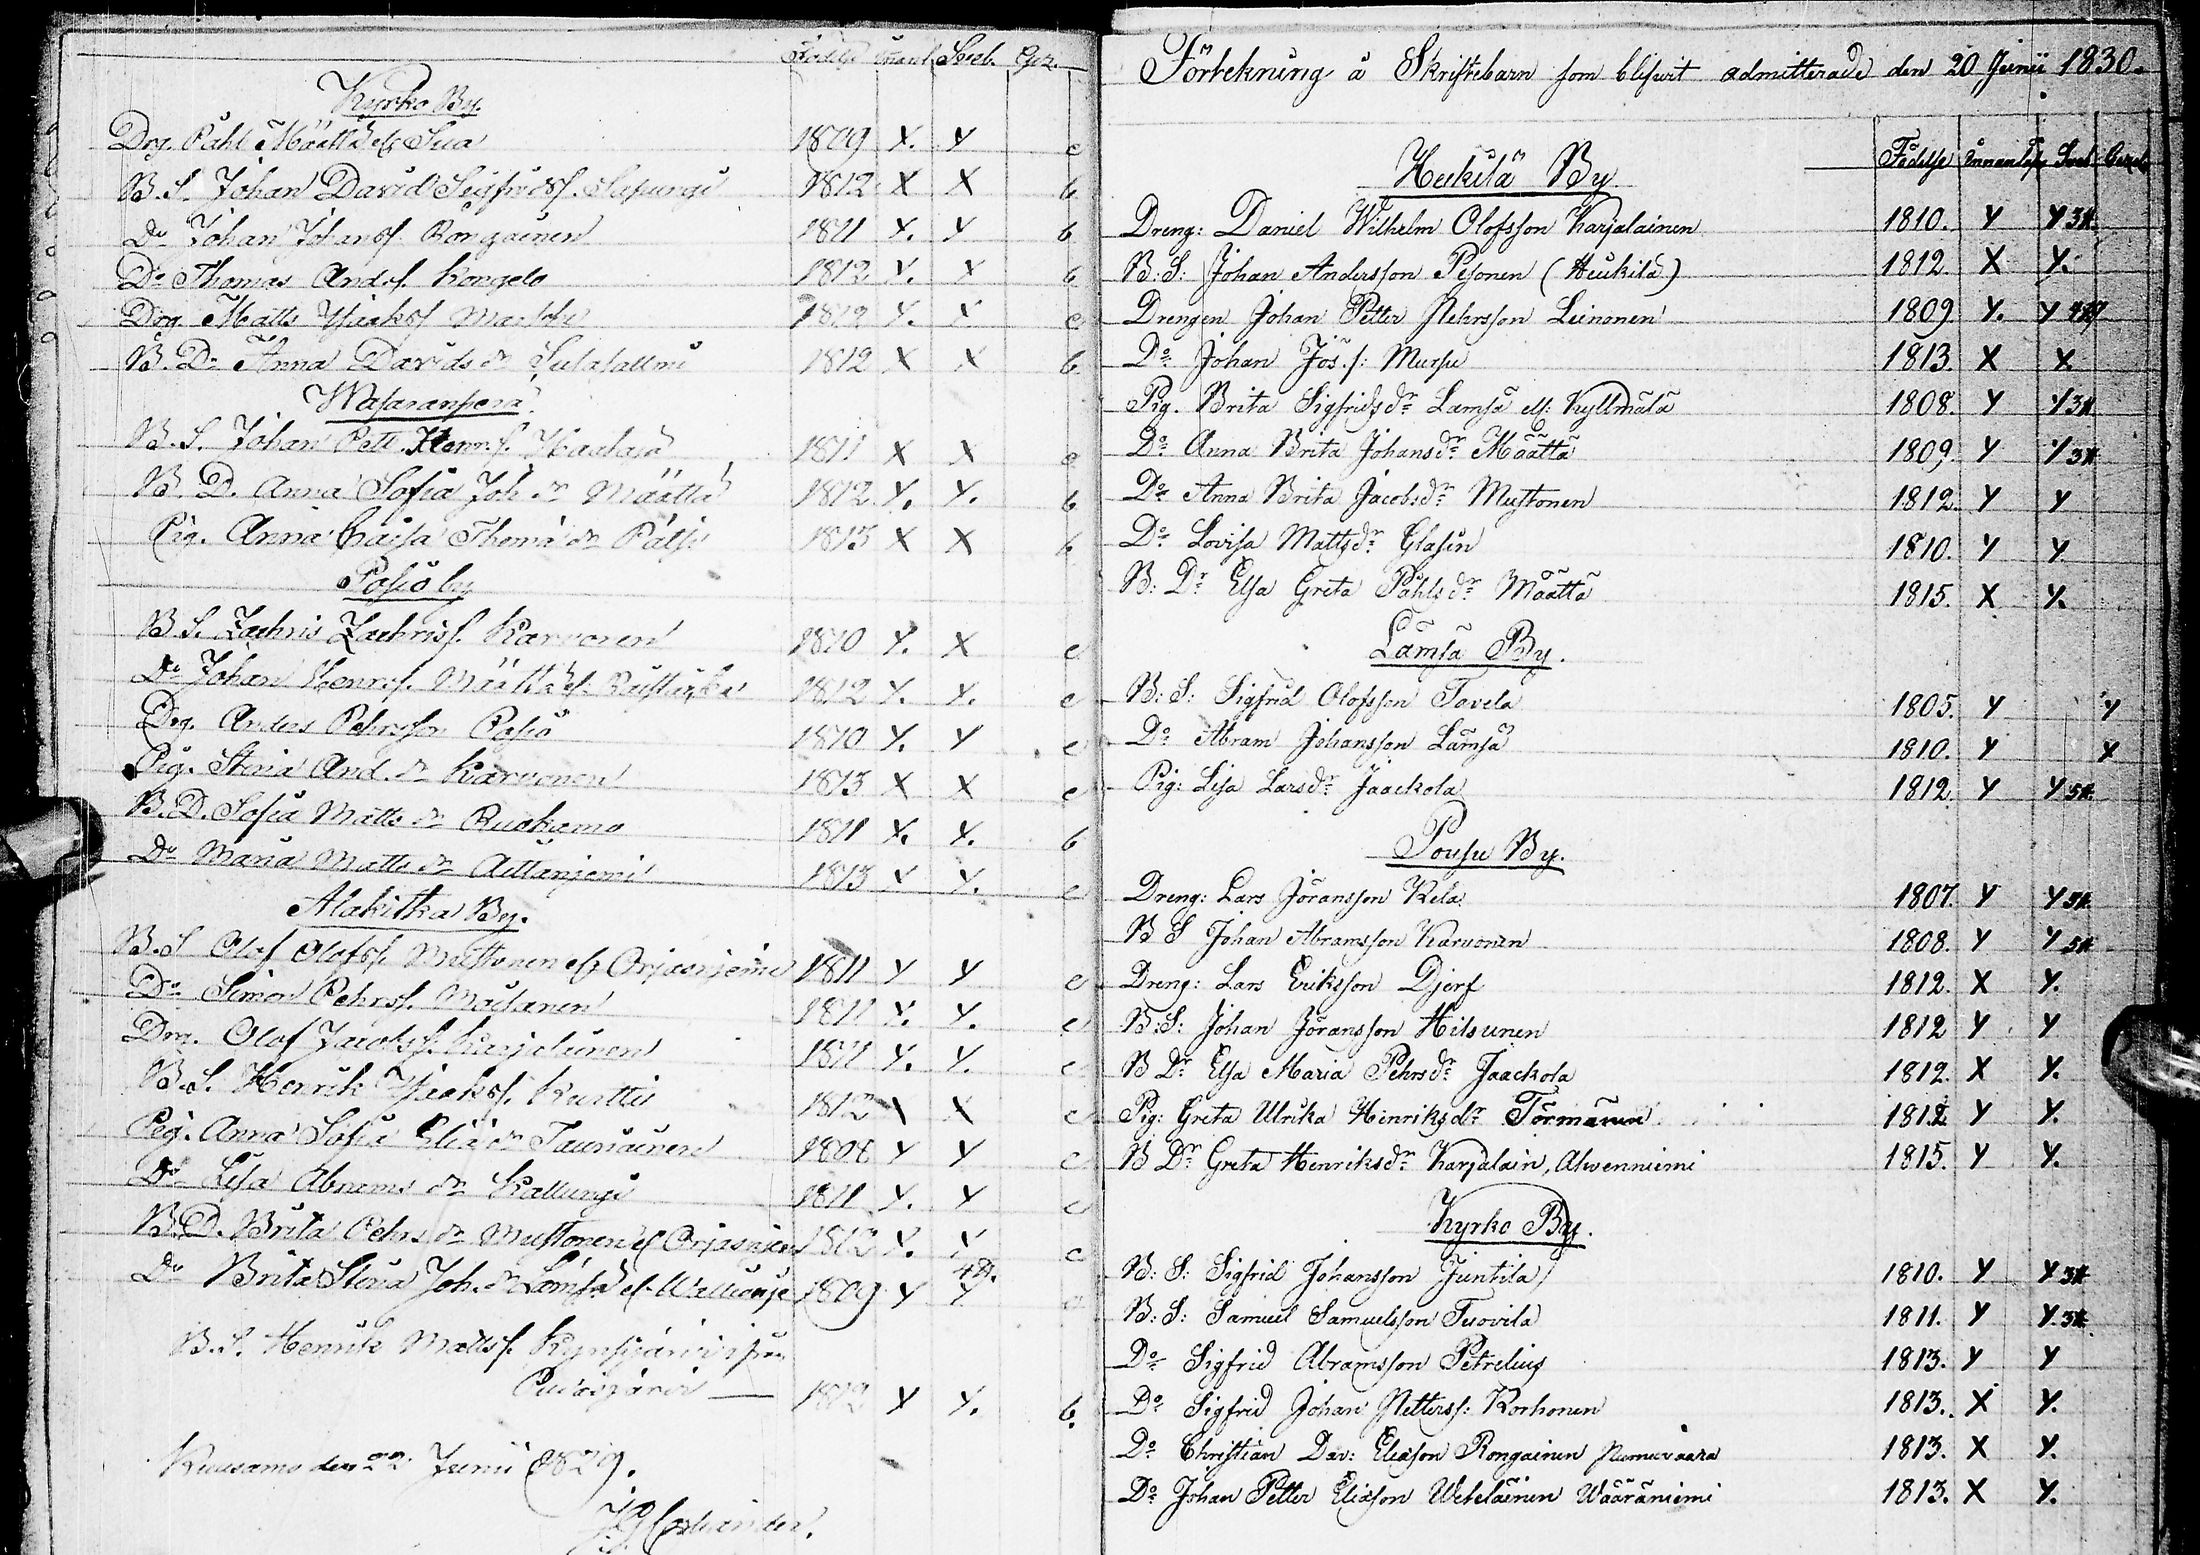 Födelse Innant Sveb. Expl.
Kyrko By.
Drg. Påhl Määttä el. Sua 1809 X. Y c
B. S. Johan David Sigfridss. Säpungi 1812 X X b
Do Johan Johanss. Rongainen 1811 Y. Y b
Do Thomas Ands. Kongelo 1812 Y. X b
Drg Matts Isaks. 1812 Y. Y c
B. Dr Anna Davids dr Suiasallmi 1812 X X b
Wasaranperä
B. S. Johan Pett. Henr.s. 1811 X X c
B. D. Anna Sofia Joh. dr Määttä 1812 Y. Y. b
Pig. Anna Caisa Thom. dr Pätsi 1813 X X b
Posio by
B S. Zachris Zachriss. Karvonen 1810 Y. X c
Do Johan Henrs. Määttä el. 1812 Y. Y. c
Drg. Anders Pehrsson Posio 1810 Y. Y c
Pig. Stina And. dr Karvonen 1813 X X c
B. D. Sofia Matts dr Ruokamo 1811 Y. Y. b
Do Maria Matts dr Aittaniemi 1813 Y Y. c
Alakitka By.
B. S Olof Olofss. Mustonen el. Orjasniemi 1811 Y Y c
Do Simon Pehrss. 1811 Y. Y. c
Drg. Olof Jacobss. Karjalainen 1811 Y. Y. c
B. S. Henrik Isakss. Kurtti 1812 X X c
Pig. Anna Sofia Eliæ dr Tauriainen 1808 Y Y c
Do Lisa Abrams dr Kallungi 1811 Y. Y c
B. D. Brita Pehrs dr Mustonen el. Orjasniem 1812 Y. Y c
Do Brita Stina Joh. dr Lämsä el. 1809 Y Y
B. S. Henrik Mattss. från
Pudasjärvi 1812 Y Y. b.
Kuusamo den 22 Junii 1829.
Förtekning å Skriftebarn som blifwit admitterade den 20 Junii 1830.
Födelse Innanläsn Sveb
Heikilä By
Dreng: Daniel Wilhelm Olofsson Karjalainen 1810. Y Y 3
B: S: Johan Andersson Pesonen (Heikilä) 1812 X Y.
Drengen Johan Petter Pehrsson Leinonen 1809. Y. Y
Do Johan Jös. s: Mursu 1813. X X
Pig. Brita Sigfrids dr Lamsa ell: Kyllmälä 1808. Y Y 3
Do Anna Brita Johans dr Määttä 1809. Y Y 3
Do Anna Brita Jacobs dr Mustonen 1812 Y Y
Do Lovisa Matts dr Glasin 1810. Y Y
B: Dr Elsa Greta Påhls dr Määttä 1815. X Y.
Lämsä By.
B: S: Sigfrid Olofsson Tavela 1805. Y Y
Do Abram Johansson Lämsä 1810. Y X
Pig: Lisa Lars dr Jaackola 1812 Y Y 5
Pousu By.
Dreng: Lars Jöransson Kela 1807. Y Y 5
B S Johan Abramsson Karvonen 1808. Y Y 5
Dreng: Lars Eriksson Djerf 1812. X Y.
B: S: Johan Jöransson Hilsunen 1812 Y Y
B Dr Elsa Maria Pehrs dr Jaackola 1812. X Y.
Pig: Greta Ulrika Henriks dr Törmänen 1812 Y Y.
B Dr Greta Henriks dr Karjalain, Ahvenniemi 1815. Y Y.
Kyrko By.
B: S: Sigfrid Johansson Juntila 1810. Y Y 3
B: S: Samuel Samuelsson Tuovila 1811. Y Y. 3
Do Sigfrid Abramsson Petrelius 1813. Y Y
Do Sigfrid Johan Petterss: Korhonen 1813. X Y.
Do Christian Dav: Eliæson Rongainen Nurmivaara 1813. X Y.
Do Johan Petter Eliæson Wetelainen Wääräniemi 1813. X Y.